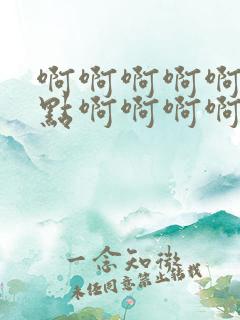 啊啊啊啊啊
點啊啊啊啊
一念知微
未經同意禁止轉載